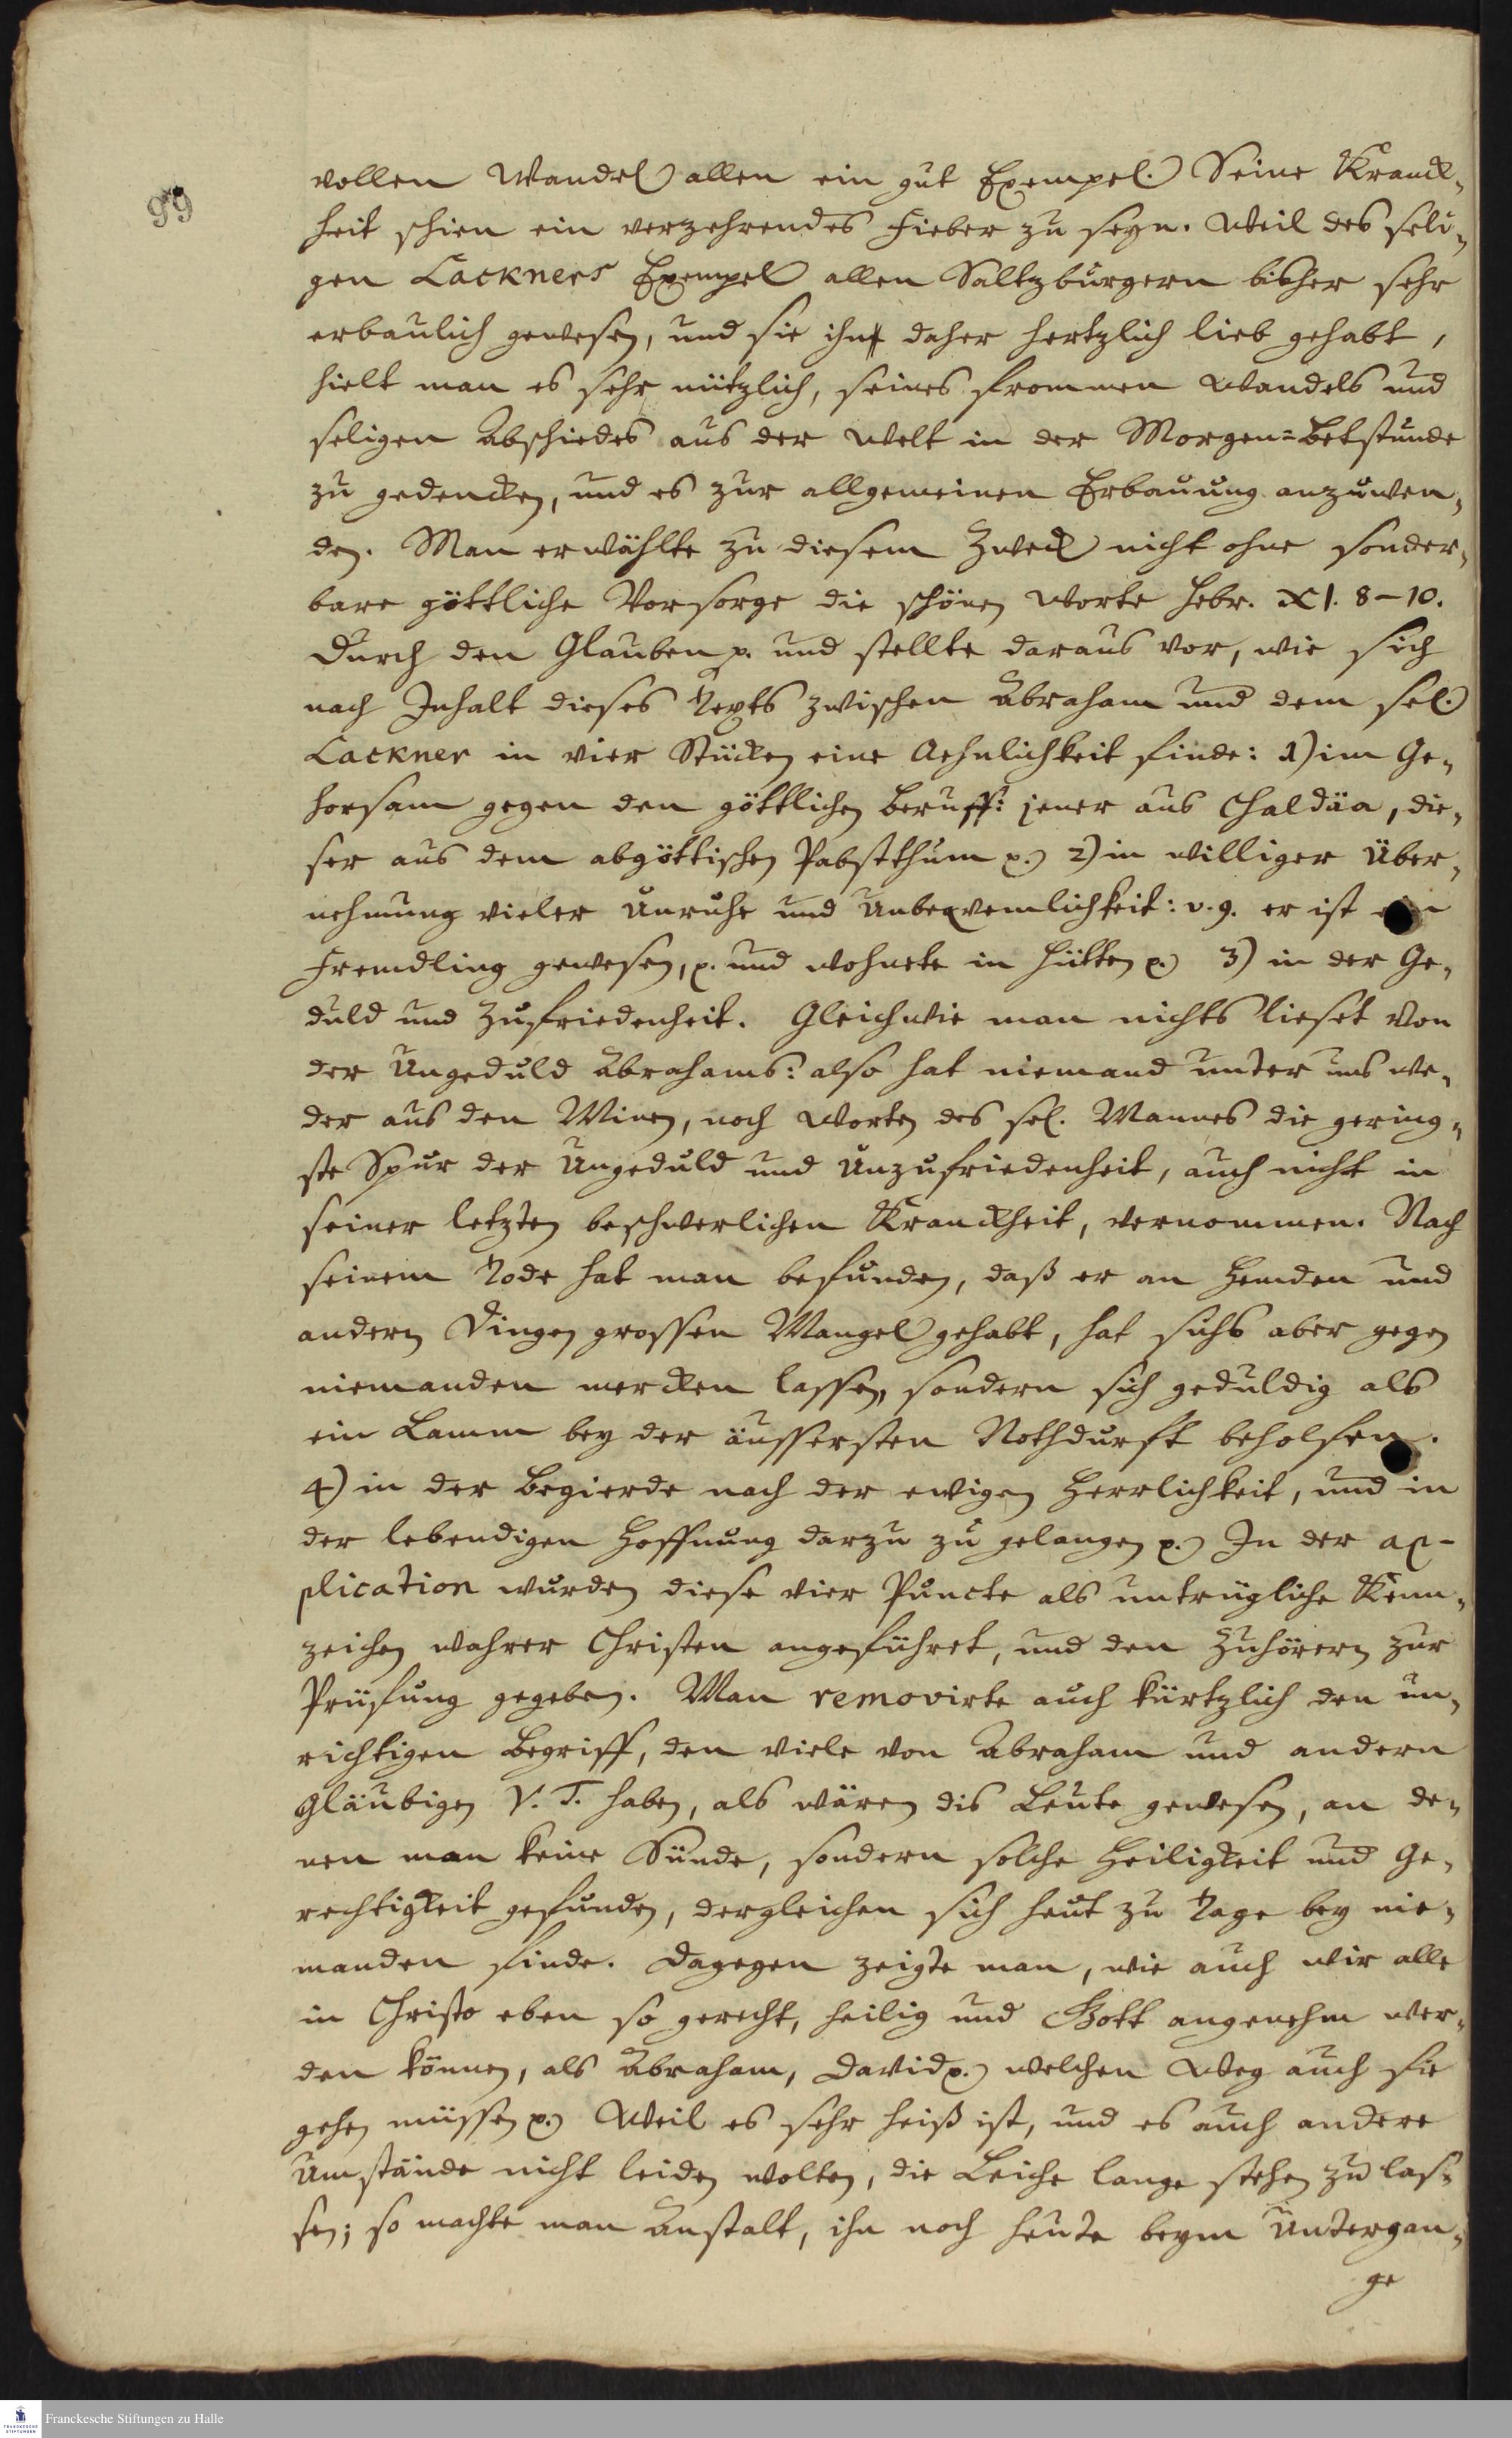 99
vollen Wandel allen ein gut Exempel. Seine Kranck-
heit schien ein verzehrendes Fieber zu seyn. Weil des seli-
gen Lackners Exempel allen Saltzburgern bisher sehr
erbaulich gewesen, und sie ihn daher hertzlich lieb gehabt,
hielt man es sehr nützlich, seines frommen Wandels und
seligen Abschiedes aus der Welt in der Morgen-Betstunde
zu gedencken, und es zur allgemeinen Erbauung anzuwen-
den. Man erwählte zu diesem Zweck nicht ohne sonder-
bare göttliche Vorsorge die schönen Worte Hebr. XI. 8-10.
Durch den Glauben p. und stellte daraus vor, wie sich
nach Inhalt dieses Texts zwischen Abraham und dem sel.
Lackner in vier Stücken eine Aehnlichkeit finde: 1) im Ge-
horsam gegen den göttlichen Beruff: jener aus Chaldäa, die-
ser aus dem abgöttischen Pabstthum p. 2) in williger Über-
nehmung vieler Unruhe und Unbeqvemlichkeit: v. 9. er ist ein
Fremdling gewesen, p. und wohnete in Hütten p. 3) in der Ge-
duld und Zufriedenheit. Gleichwie man nichts lieset von
der Ungeduld Abrahams: also hat niemand unter uns we-
der aus den Minen, noch Worten des sel. Mannes die gering-
ste Spur der Ungeduld und Unzufriedenheit, auch nicht in
seiner letzten beschwerlichen Kranckheit, vernommen. Nach
seinem Tode hat man befunden, daß er an Hemden und
andern Dingen grossen Mangel gehabt, hat sichs aber gegen
niemanden mercken lassen, sondern sich geduldig als
ein Lamm bey der äussersten Nothdurft beholfen.
4) in der Begierde nach der ewigen Herrlichkeit, und in
der lebendigen Hoffnung darzu zu gelangen p. In der ap-
plication wurden diese vier Puncte als untrügliche Kenn-
zeichen wahrer Christen angeführet, und den Zuhörern zur
Prüfung gegeben. Man removirte auch kürtzlich den un-
richtigen Begriff, den viele von Abraham und andern
Gläubigen V. T. haben, als wären dis Leute gewesen, an de-
nen man keine Sünde, sondern solche Heiligkeit und Ge-
rechtigkeit gefunden, dergleichen sich heut zu Tage bey nie-
manden finde. Dagegen zeigte man, wie auch wir alle
in Christo eben so gerecht, heilig und Gott angenehm wer-
den können, als Abraham, David p. welchen Weg auch sie
gehen müssen p. Weil es sehr heiß ist, und es auch andere
Umstände nicht leiden wolten, die Leiche lange stehen zu las-
sen; so machte man Anstalt, ihn noch heute beym Untergan-
ge
Franckesche Stiftungen zu Halle